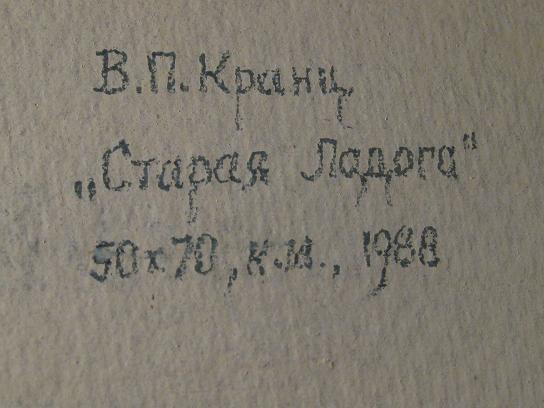 В.П. Кранц
„Старая Ладога"
50х70, к.м., 1988